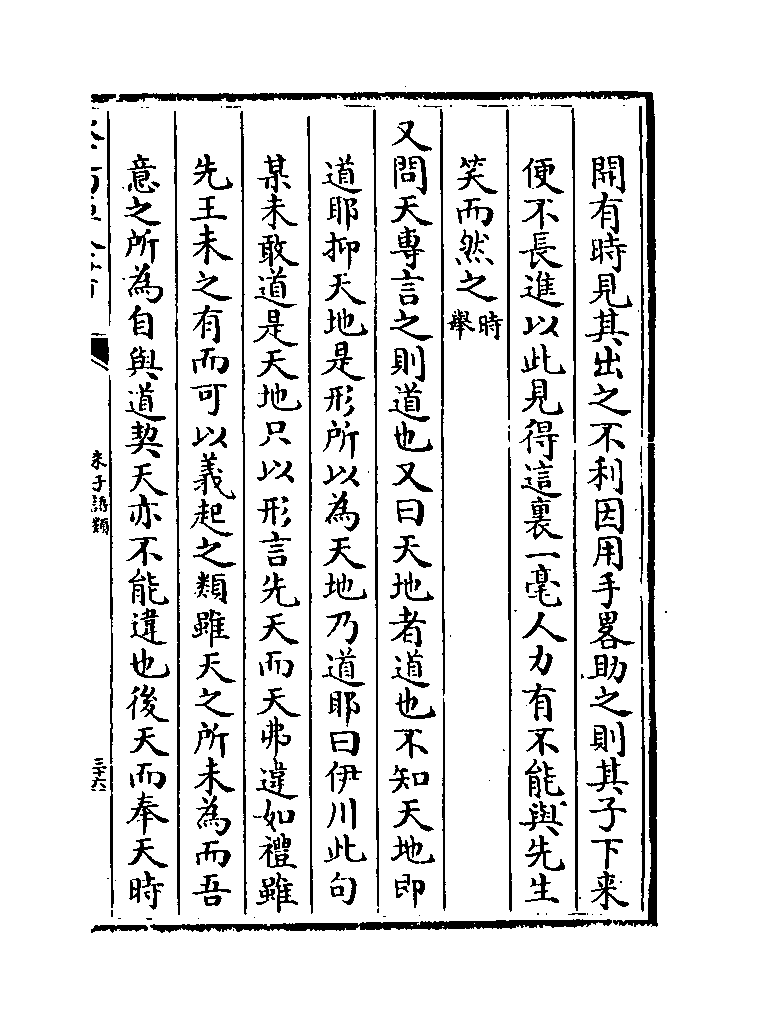 開有時見其出之不利因用手畧助之則其子下来
便不長進以此見得這裏一毫人力有不能與先生
笑而然之時舉
又問天專言之則道也又曰天地者道也不知天地即
道耶抑天地是形所以為天地乃道耶曰伊川此句
某未敢道是天地只以形言先天而天弗違如禮雖
先王未之有而可以義起之類雖天之所未為而吾
意之所為自與道契天亦不能違也後天而奉天時
朱子語類
三十六